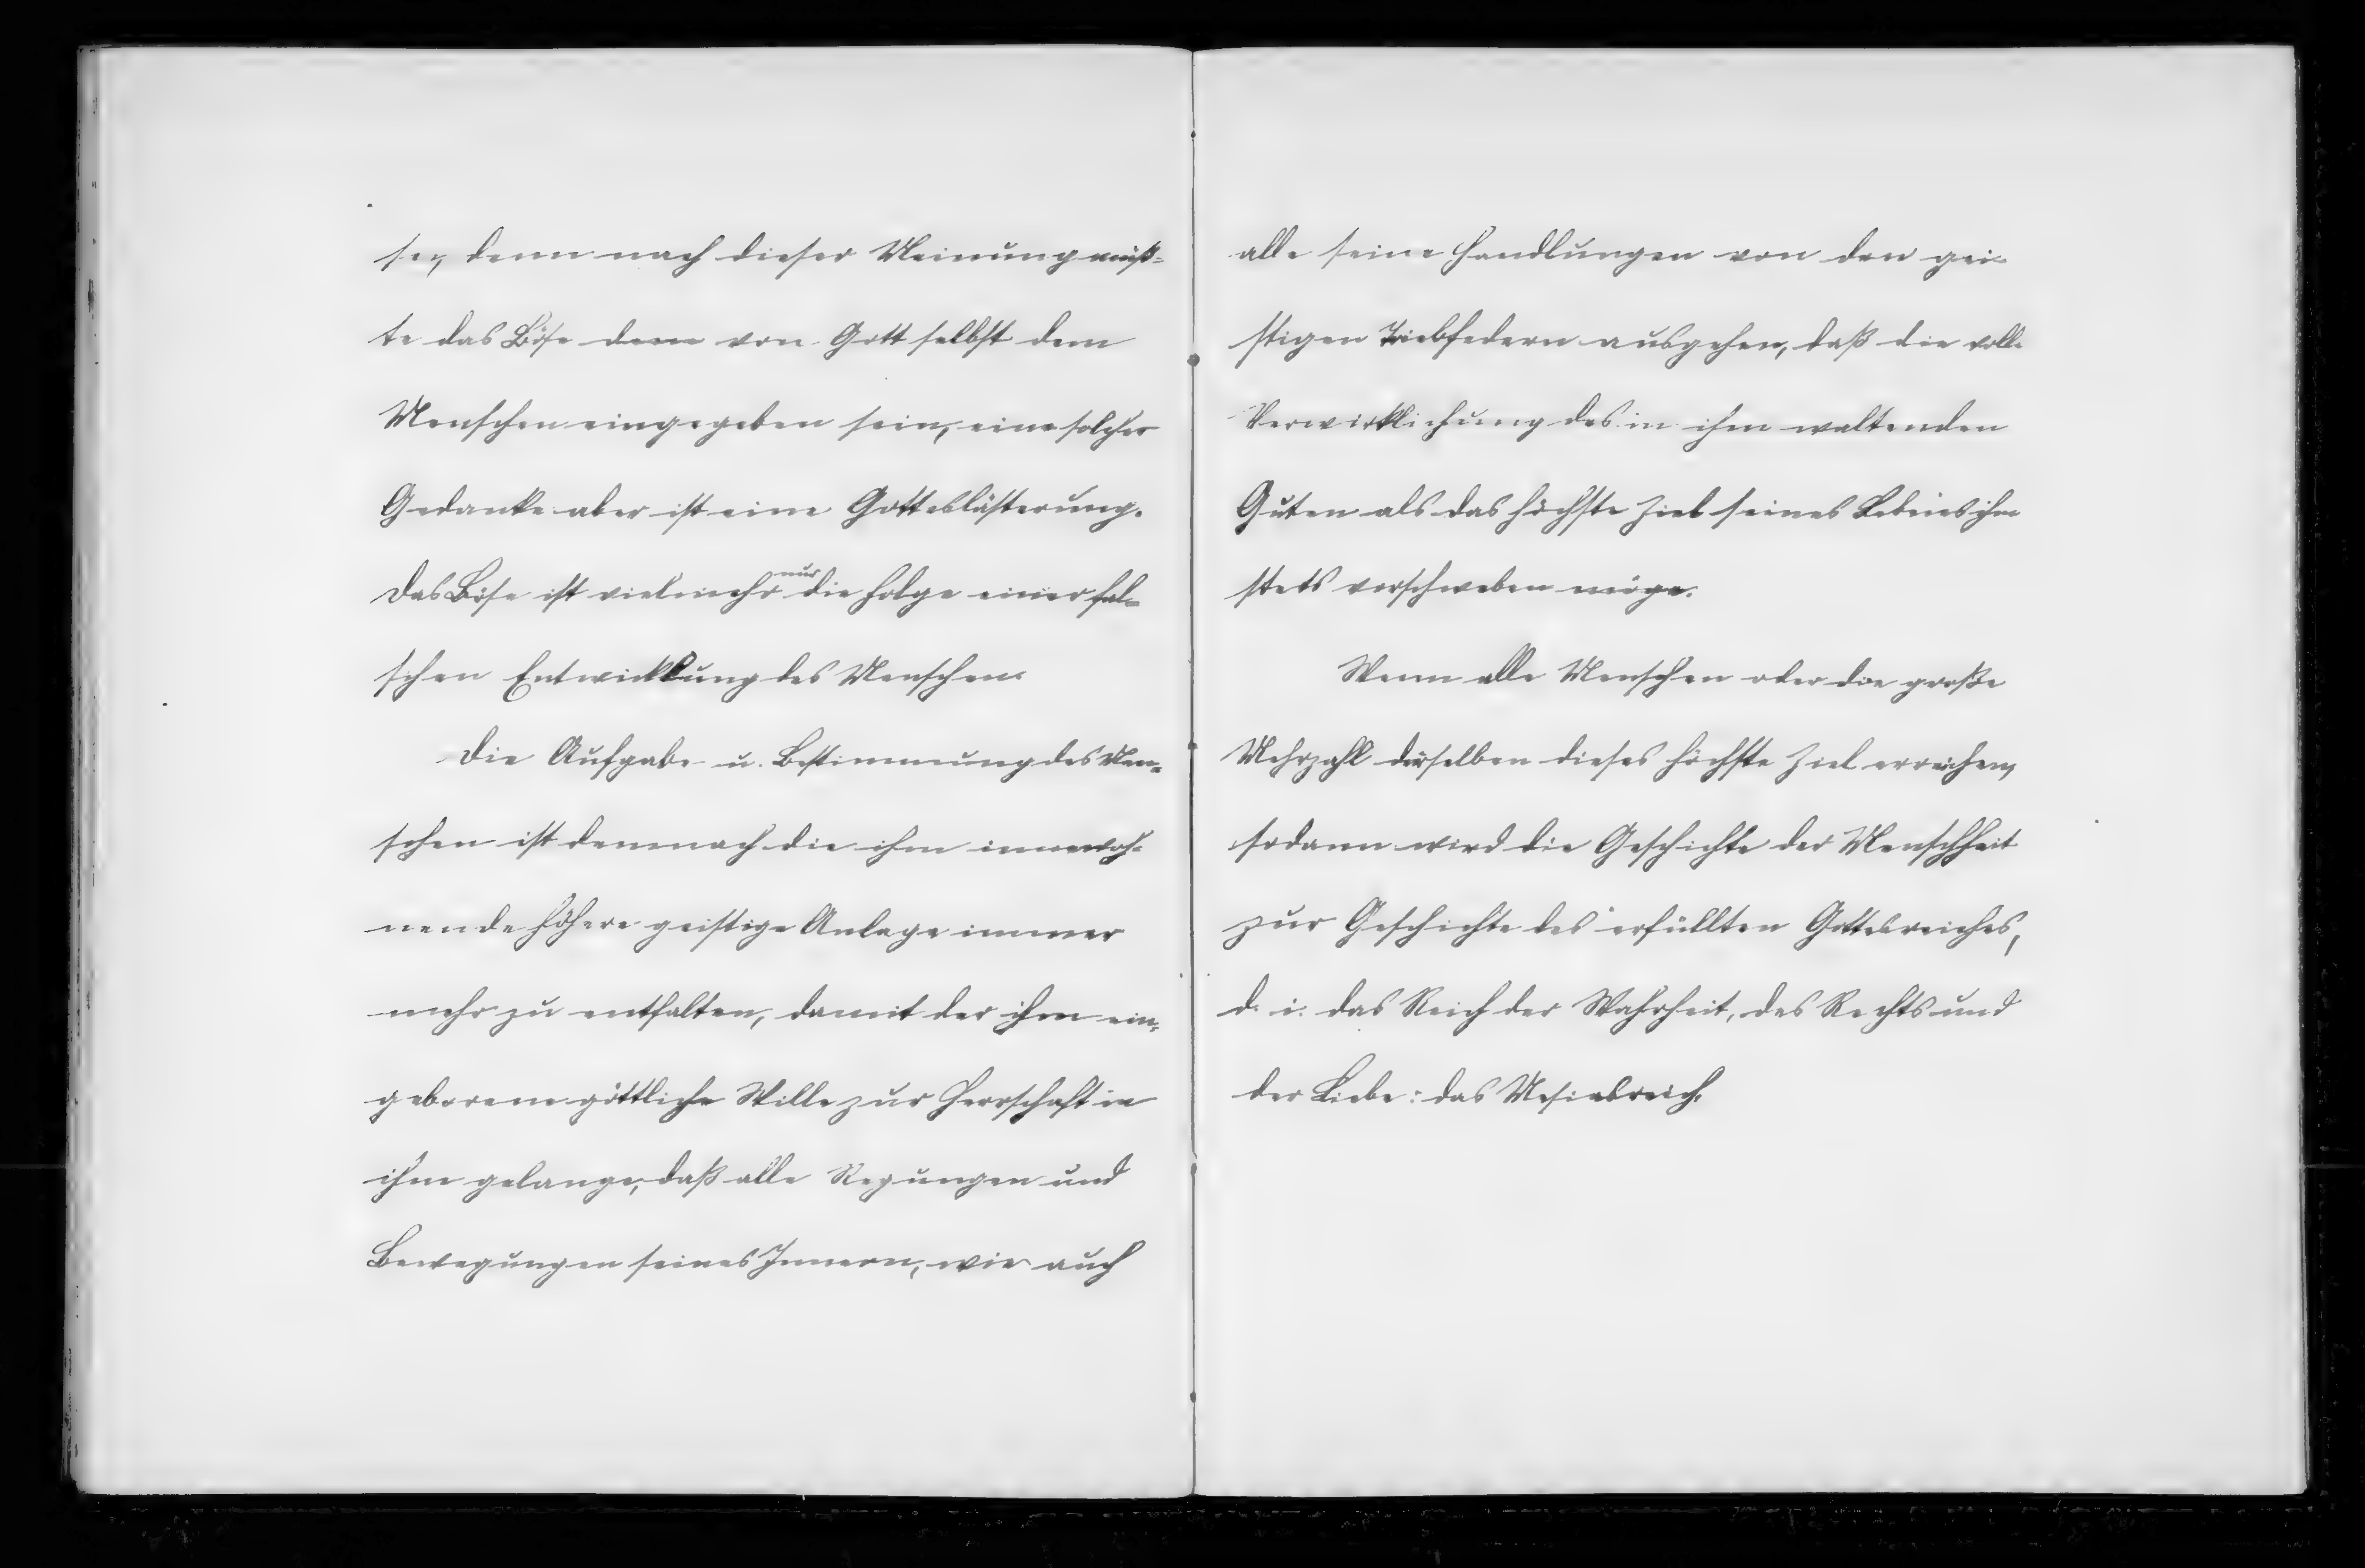 ser, denn nach dieser Meinung müß-
te das Böse dem von Gott selbst dem
Menschen eingegeben sein, eine solcher
Gedanke aber ist eine Gotteslästerung.
Das Böse ist vielmehr nur die Folge einer fal-
schen Entwicklung des Menschen.
Die Aufgabe u. Bestimmung des Men-
schen ist demnach die ihm innewoh-
nende höhere geistige Anlage immer
mehr zu entfalten, damit der ihm ein-
geborene göttliche Wille zur Herrschaft in
ihm gelange, daß alle Regungen und
Bewegungen seines Innern, wie auch
alle seine Handlungen von den gei-
stigen Triebfedern ausgehen, daß die volle
Verwirklichung des in ihm waltenden
Guten als das höchste Ziel seines Lebens ihm
stets vorschweben möge.
Wenn alle Menschen oder die große
Mehrzahl derselben dieses höchste Ziel erreichen,
sodann wird die Geschichte der Menschheit
zur Geschichte des erfüllten Gottesreiches,
d. i. das Reich der Wahrheit, des Rechts und
der Liebe: das Mesiasreich.